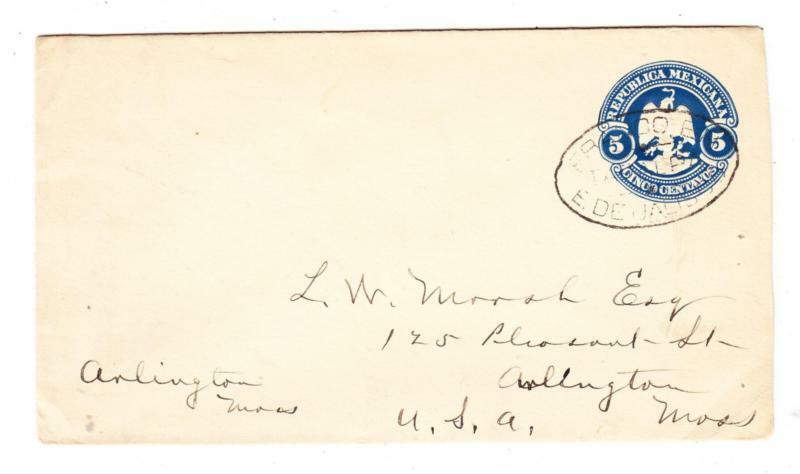 REPUBLICA MEXICANA
5 5
CINCO CENTAVOS
E. DE JALIS
L. W. Marsh Esq
125 Pleasant St
Arlington
Mass
Arlington
Mass
U. S. A.